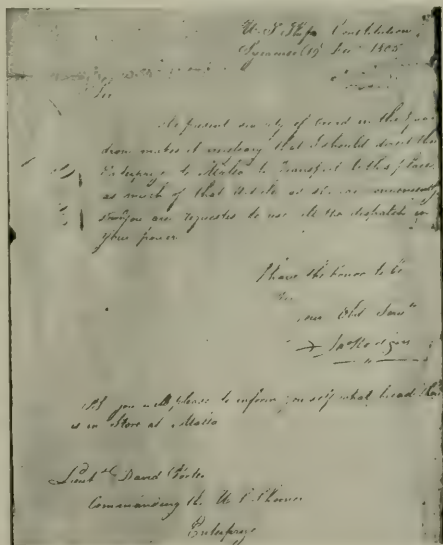 U. S. Ship Constitution
Syracuse 1805
Sir
The present scarcity of bread in the Squa
dron makes it necessary that I should direct the
Enterprize to Malta to transport to this place
as much of that article as she can conveniently
you are requested to use all the dispatch in
your power
I have the honor to be
Sir
your Obt
Jn Rodgers
you will please to inform yourself what bread there
is in Store at Malta
Lieut David Porter
Commanding the U. S. Schooner
Enterprize